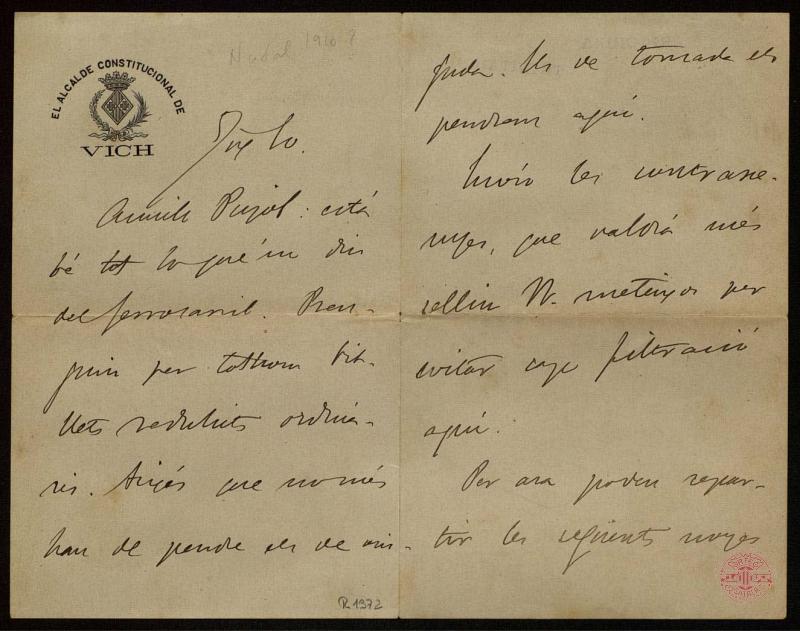 Nadal 1910?
EL ALCALDE CONSTITUCIONAL DE
VICH
Amich Pujol: está
bé tot lo qué'm diu
del ferrocarril. Pren-
guin per tothom bit-
llets reduhits ordina-
ris. Aixís que només
han de pendre els de anu-
R.1972
guda. Els de tornada els
pendrem aquí.
Envio les contrase-
nyes, que valdrá més
sellin Vs. mateixos per
evitar cap filtració
aquí.
Per ara poden repar-
tir les següents noyes
ORFEÓ
CATALÀ